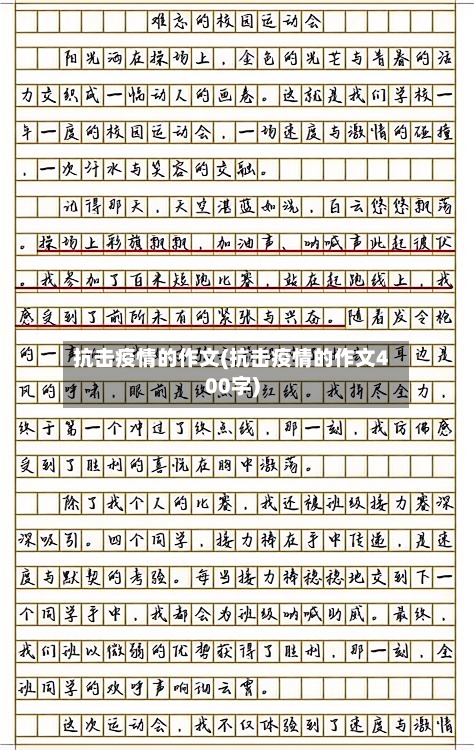 难忘的校园运动会
阳光洒在操场上，金色的光芒与青春的活
力交织成一幅动人的画卷。这就是我们学校一
年一度的校园运动会，一场速度与激情的碰撞
，一次汗水与笑容的交融。
记得那天，天空湛蓝如洗，白云悠悠飘荡
。操场上彩旗飘飘，加油声、呐喊声此起彼伏
。我参加了百米短跑比赛，站在起跑线上，我
感受到了前所未有的紧张与兴奋。随着发令枪
的一声
耳边是
抗击疫情的作文(抗击疫情的作文4
00字)
风的呼啸，眼前是终点的红线。我拼尽全力，
终于第一个冲过了终点线，那一刻，我仿佛感
受到了胜利的喜悦在胸中激荡。
除了我个人的比赛，我还被班级接力赛深
深吸引。四个同学，接力棒在手中传递，是速
度与默契的考验。每当接力棒稳稳地交到下一
个同学手中，我都会为班级呐喊助威。最终，
我们班以微弱的优势获得了胜利，那一刻，全
班同学的欢呼声响彻云霄。
这次运动会，我不仅体验到了速度与激情